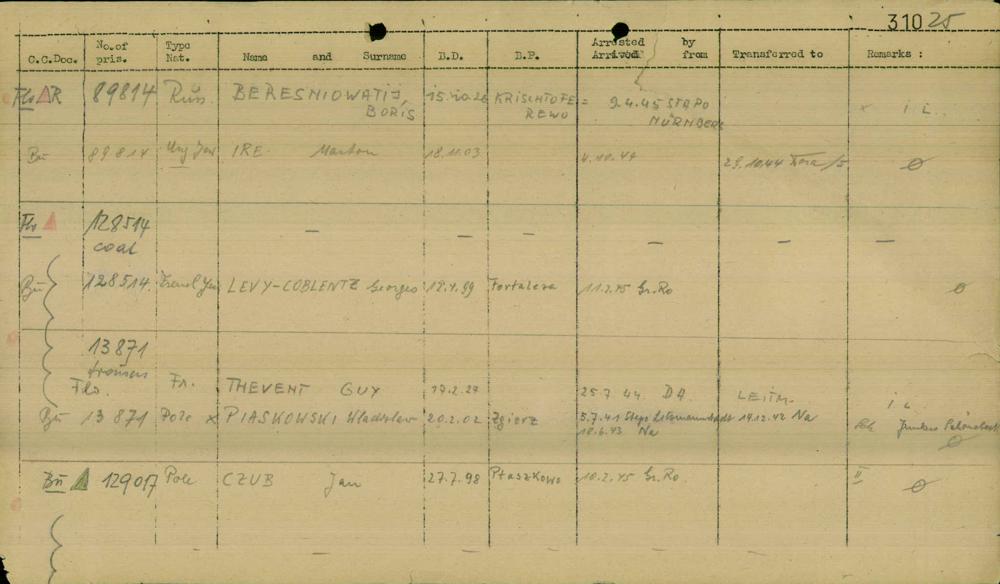 31025
C.C.Doc. No.of pris. Type Nat. Name and Surname B.D. B.P. Arrested Arrived by from Transferred to Remarks :
Flo R 89814 Rus. BERESNIOWATIJ 15.10.26 KRISCHTOFE= 2.4.45 STAPO x i L.
BORIS REWO NÜRNBERG
Bu 89814 Ung Jew IRE Marton 18.11.03 4.10.44 29.10.44 /5 ø
Flo 128514 — — — — — —
coat
Bu 128514 Jew LEVY-COBLENTZ Georges 12.4.99 Fortaleza 11.2.45 Gr.Ro ø
13871
trousers
Flo. Fr. THEVENT GUY 17.2.27 25.7.44 DA LEITM. i L
Bu 13871 Pole x PIASKOWSKI Wladislaw 20.2.02 Zgierz 5.7.41 Litzmannstadt 14.12.42 Na
18.6.43 Na ø
Bu 129017 Pole CZUB Jan 27.7.98 Ptaszkowo 10.2.45 Gr.Ro. II ø
— — — — —